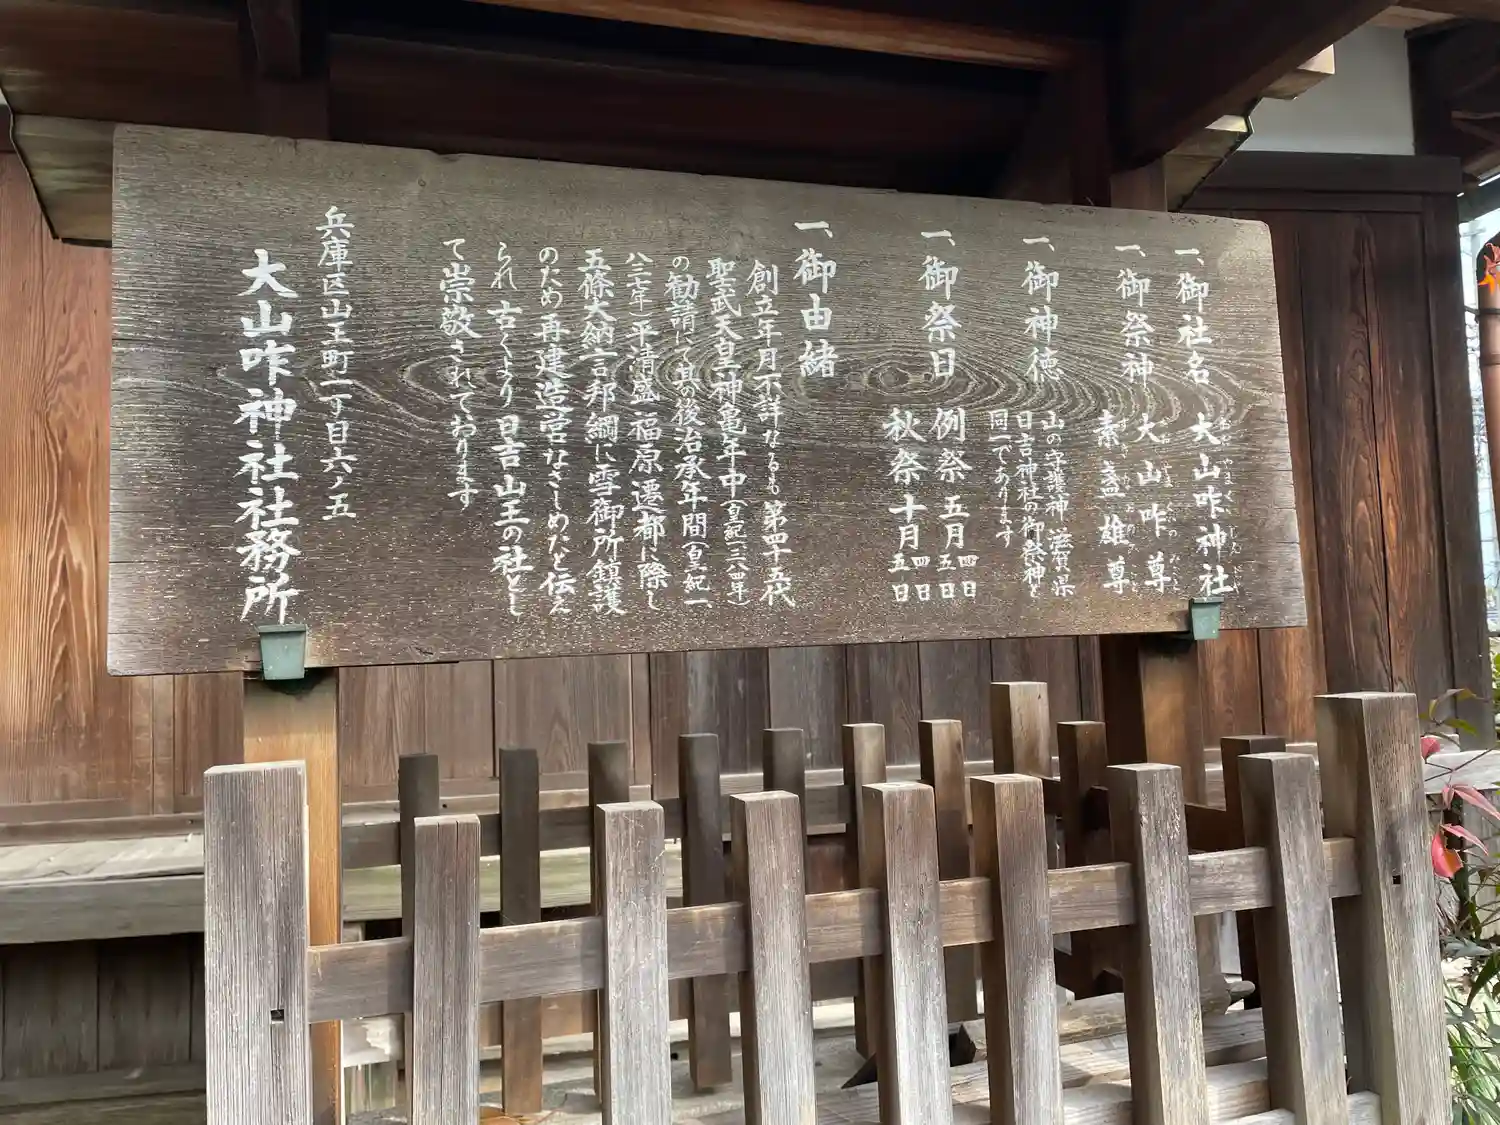 一、御社名 大山咋神社
おおやまくいじんじゃ
一、御祭神 大山咋尊
素盞雄尊
一、御神徳 山の守護神 滋賀県
日吉神社の御祭神と
同一であります
一、御祭日 例祭 五月 四日 五日
秋祭 十月 四日 五日
一、御由緒
創立年月不詳なるも 第四十五代
聖武天皇神亀年中(皇紀一三八四年)
の勧請にて其の後治承年間(皇紀一
八三七年)平清盛 福原遷都に際し
五條大納言邦綱に雪御所鎮護
のため再建造営なさしめたと伝え
られ 古くより日吉山王の社とし
て崇敬されております
兵庫区山王町一丁目六ノ五
大山咋神社社務所